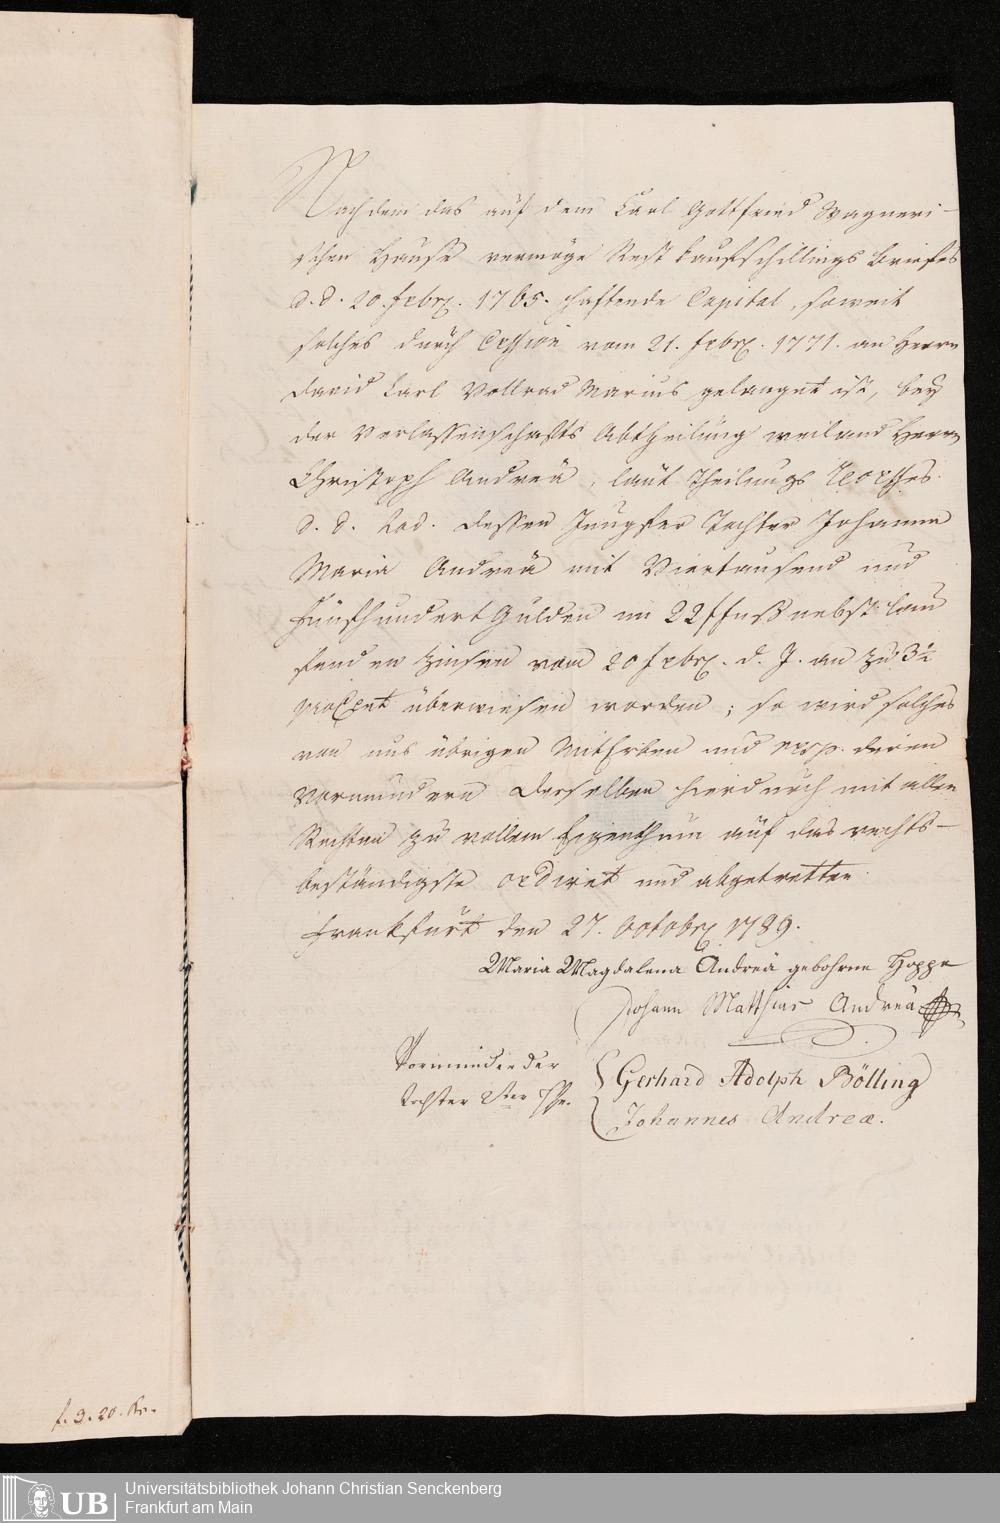 Nachdem das auf dem Carl Gottfried Wagneri-
schen Hause vermöge Restkaufschillings Briefes
d. d. 20. Febr. 1765. haftende Capital, soweit
solches durch Cession vom 21. Febr. 1771. an Herrn
David Carl Vollrad Marius gelanget ist, bey
der Verlassenschafts Abtheilung weiland Herrn
Christoph Andreä, laut Theilungs
d. d. hod. dessen Jungfer Tochter Johanna
Maria Andreä mit Viertausend und
Fünfhundert Gulden im 22 f fuß nebst lau
fenden Zinsen vom 20 Febr. d. J. an zu 3½
proCent überwiesen worden; so wird solches
von uns übrigen MitErben und resp. deren
Vormündern derselben hierdurch mit allen
Rechten zu vollem Eigenthum auf das rechts-
beständigste cediret und abgetretten.
Frankfurt den 27. Octobr 1789.
Maria Magdalena Andreä gebohrne Hoppe
Johann Matthias Andreä
Vormünder der
Tochter 2ter Ehe.
Gerhard Adolph Bölling
Johannes Andreæ.
f. 3. 20. Kr.
UB
Universitätsbibliothek Johann Christian Senckenberg
Frankfurt am Main